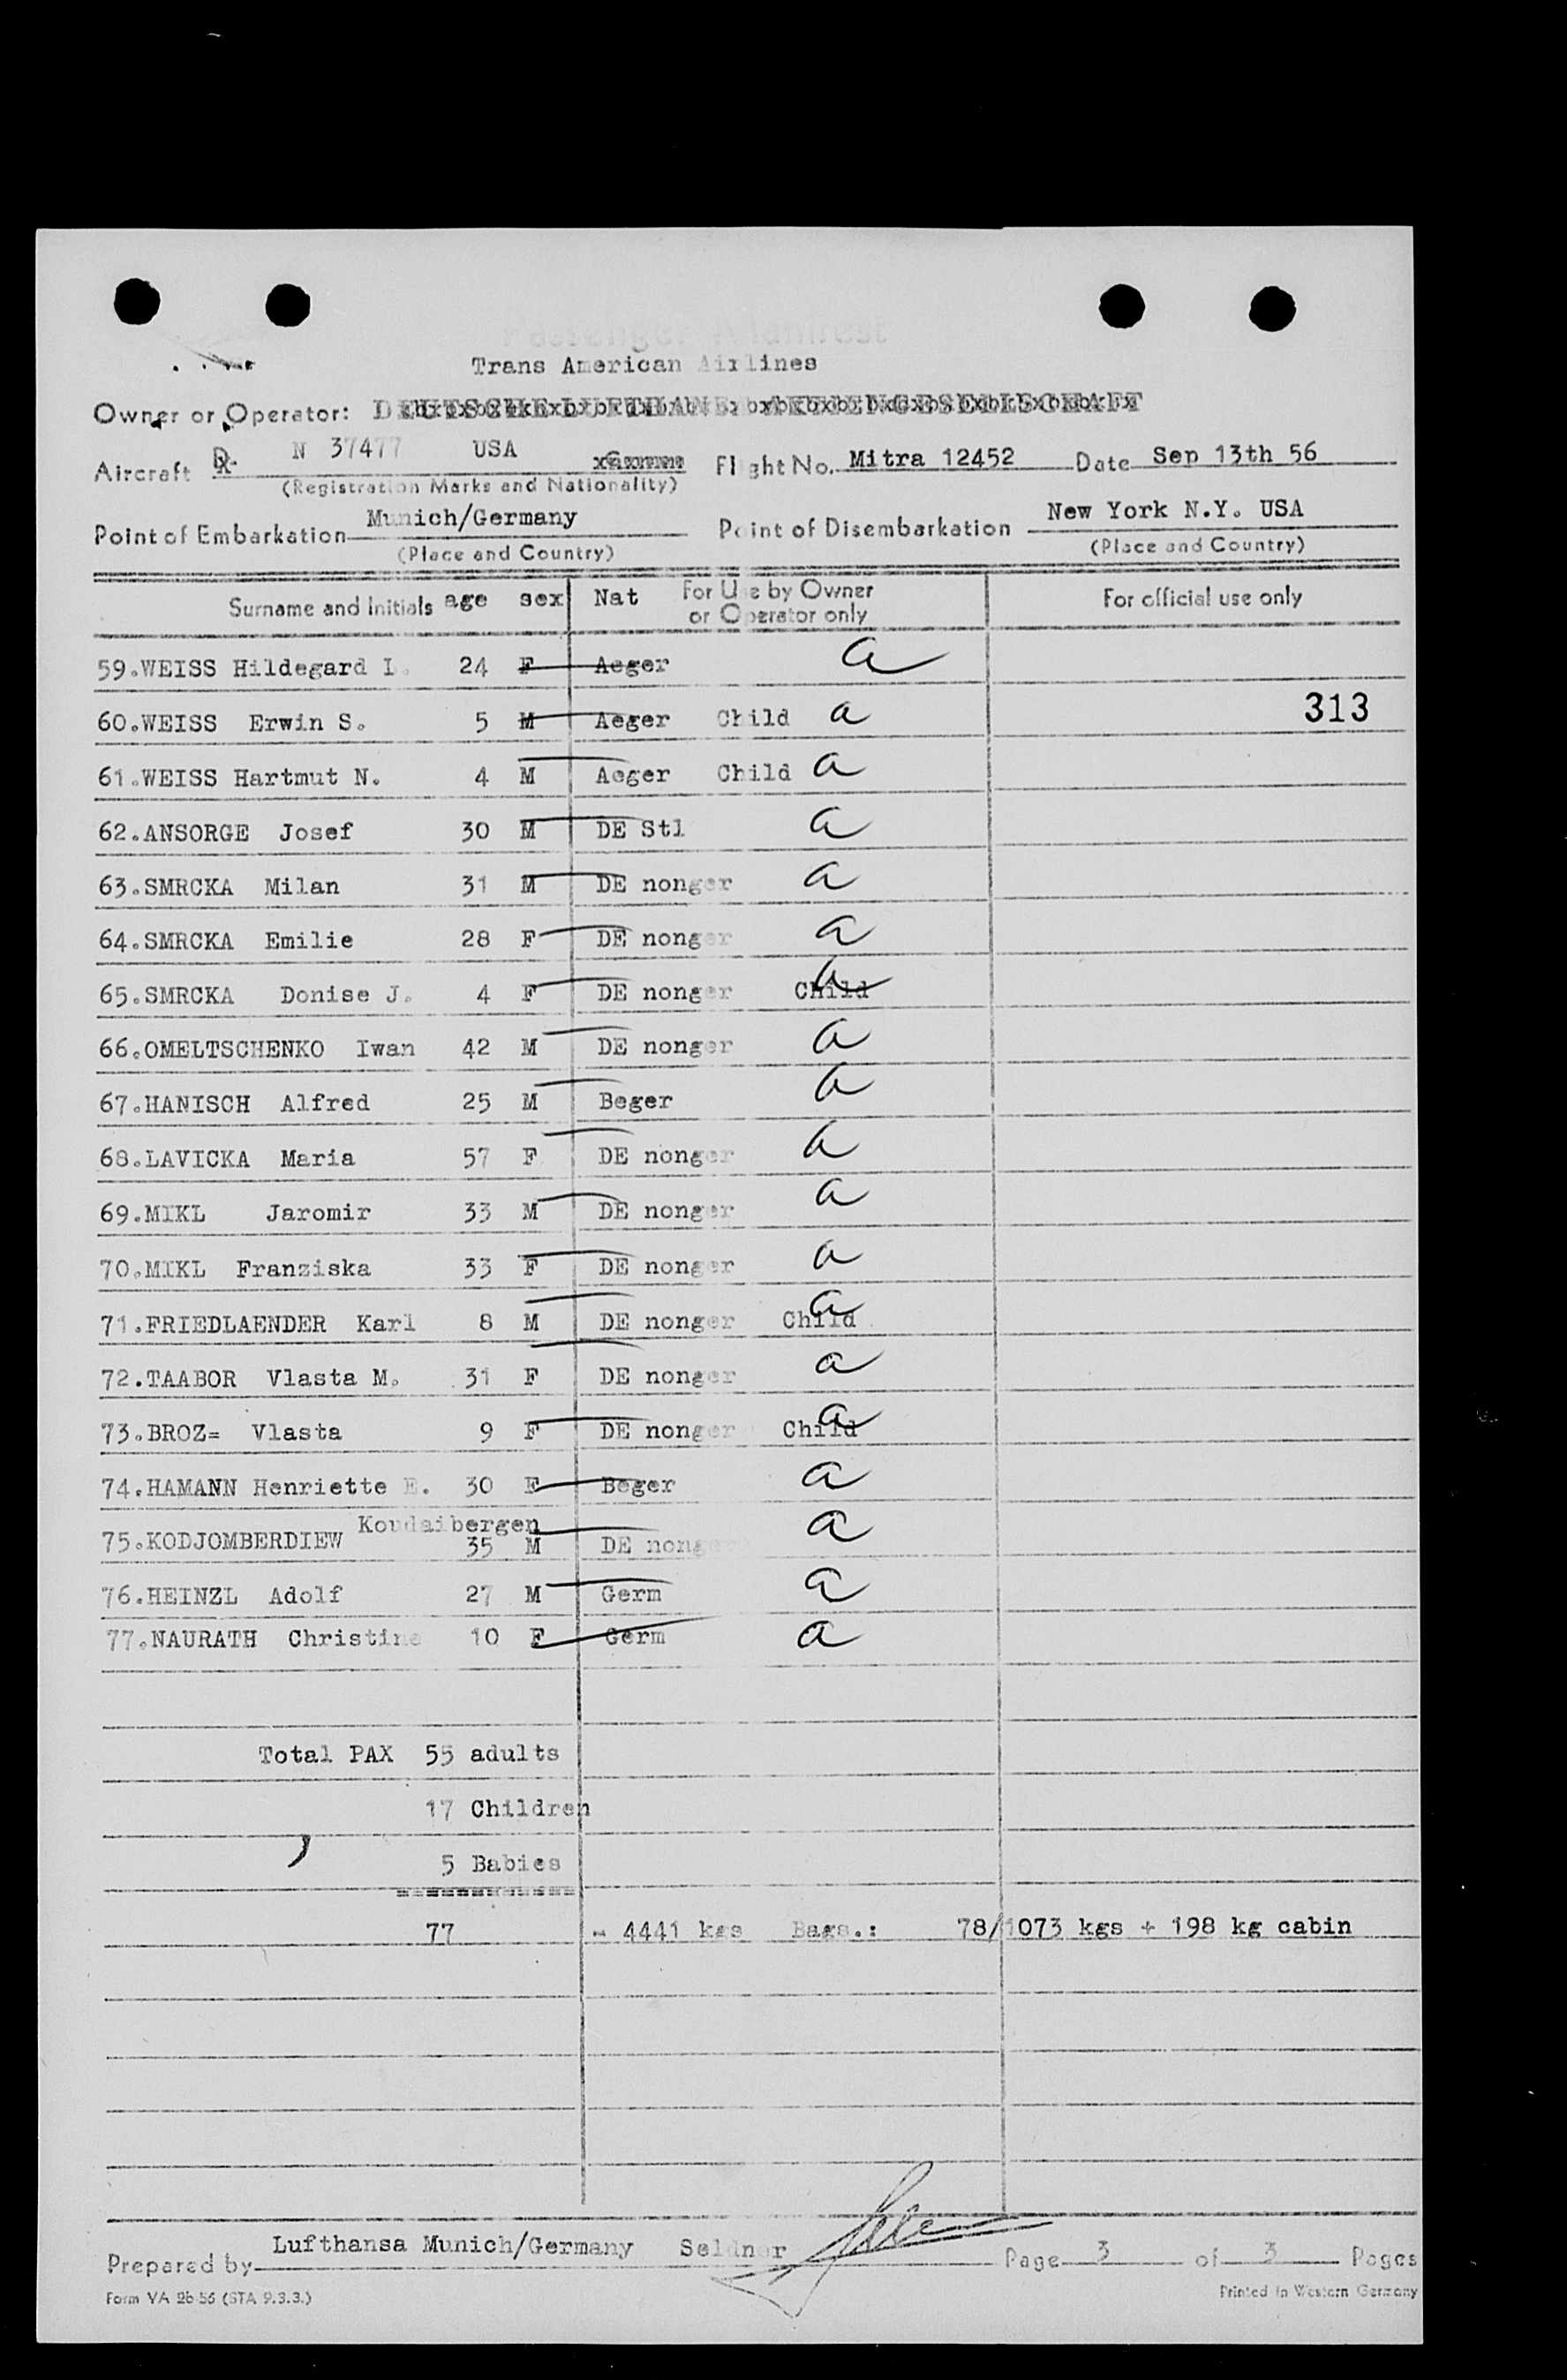 Passenger Manifest
Trans American Airlines
Owner or Operator: DEUTSCHE LUFTHANSA AKTIENGESELLSCHAFT
Aircraft D- N 37477 USA Flight No. Mitra 12452 Date Sep 13th 56
(Registration Marks and Nationality)
Point of Embarkation Munich/Germany Point of Disembarkation New York N.Y. USA
(Place and Country) (Place and Country)
Surname and Initials age sex Nat For Use by Owner or Operator only For official use only
59.WEISS Hildegard I. 24 F Aeger a
60.WEISS Erwin S. 5 M Aeger Child a
313
61.WEISS Hartmut N. 4 M Aeger Child a
62.ANSORGE Josef 30 M DE Stl a
63.SMRCKA Milan 31 M DE nonger a
64.SMRCKA Emilie 28 F DE nonger a
65.SMRCKA Donise J. 4 F DE nonger Child a
66.OMELTSCHENKO Iwan 42 M DE nonger a
67.HANISCH Alfred 25 M Beger a
68.LAVICKA Maria 57 F DE nonger a
69.MIKL Jaromir 33 M DE nonger a
70.MIKL Franziska 33 F DE nonger a
71.FRIEDLAENDER Karl 8 M DE nonger Child a
72.TAABOR Vlasta M. 31 F DE nonger a
73.BROZ= Vlasta 9 F DE nonger Child a
74.HAMANN Henriette E. 30 F Beger a
75.KODJOMBERDIEW Koudaibergen 35 M DE nonger a
76.HEINZL Adolf 27 M Germ a
77.NAURATH Christine 10 F Germ a
Total PAX 55 adults
17 Children
5 Babies
77 - 4441 kgs Bags.: 78/1073 kgs + 198 kg cabin
Prepared by Lufthansa Munich/Germany Seldner Page 3 of 3 Pages
Form VA 2b 56 (STA 9.3.3.) Printed in Western Germany